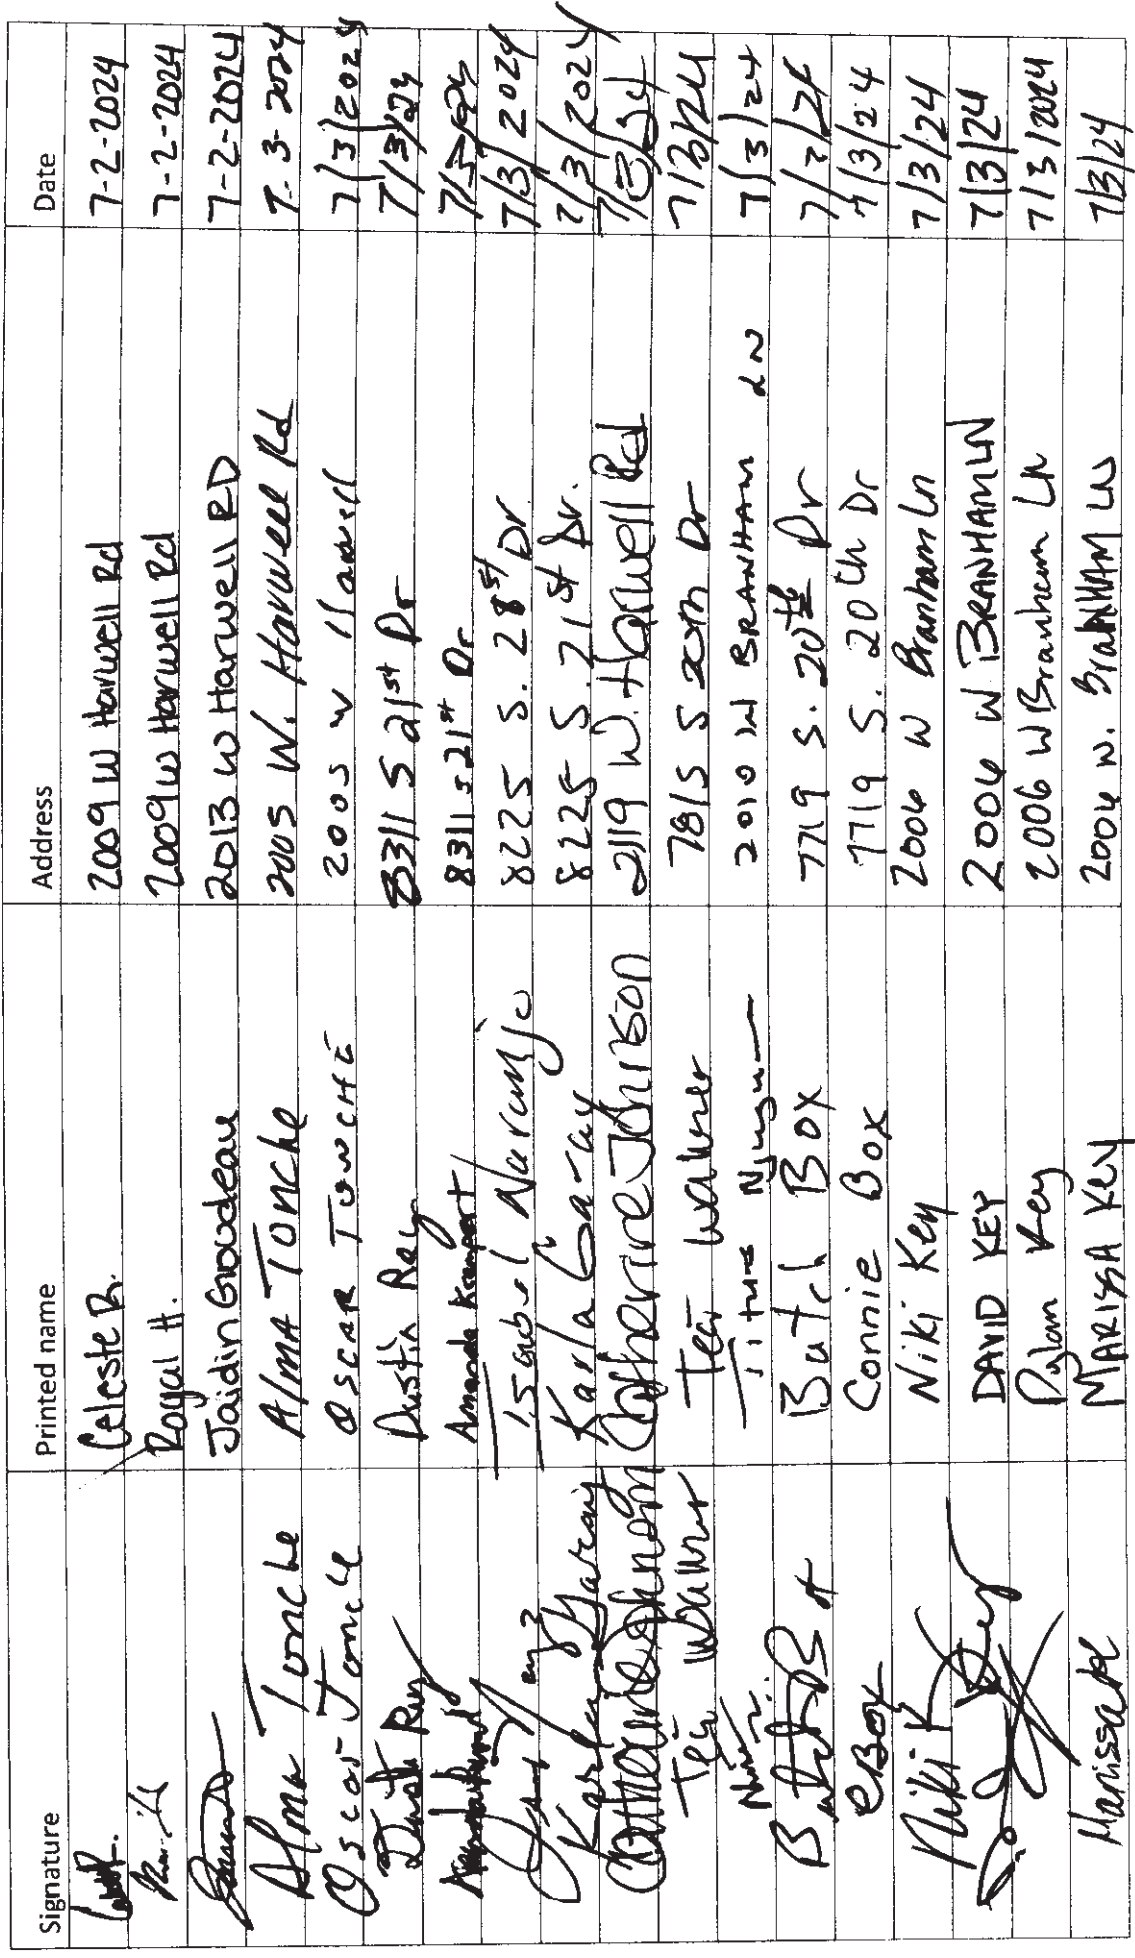 Signature Printed name Address Date
Celeste R. 2009 W Harwell Rd 7-2-2024
Royal H. 2009 W Harwell Rd 7-2-2024
Jaidin Grodeau 2013 W Harwell RD 7-2-2024
Alma Tonche Alma Tonche 2005 W. Harwell Rd 7-3-2024
Oscar Tonche Oscar Tonche 2005 W 7/3/2024
Dustin Ray Dustin Ray 8311 S 21st Dr 7/3/24
Amanda 8311 S 21st Dr
Naranjo 8225 S. 28st Dr 7/3/2024
Karla Garay Karla Garay 8225 S. 21st Dr. 7/3/2024
Catherine Johnson Catherine Johnson 2119 W. Harwell Rd 7/3/24
Walker Walker 7815 S 20th Dr 7/3/24
2010 W BRANHAM LN 7/3/24
Butch B Butch Box 7719 S. 20th Dr 7/3/24
C Box Connie Box 7719 S. 20th Dr 7/3/24
Niki K Niki Key 2006 W Branham Ln 7/3/24
DAVID KEY 2006 W BRANHAM LN 7/3/24
Dylan Key 2006 W Branham Ln 7/3/2024
Marissa MARISSA KEY 2006 W. BRANHAM LN 7/3/24